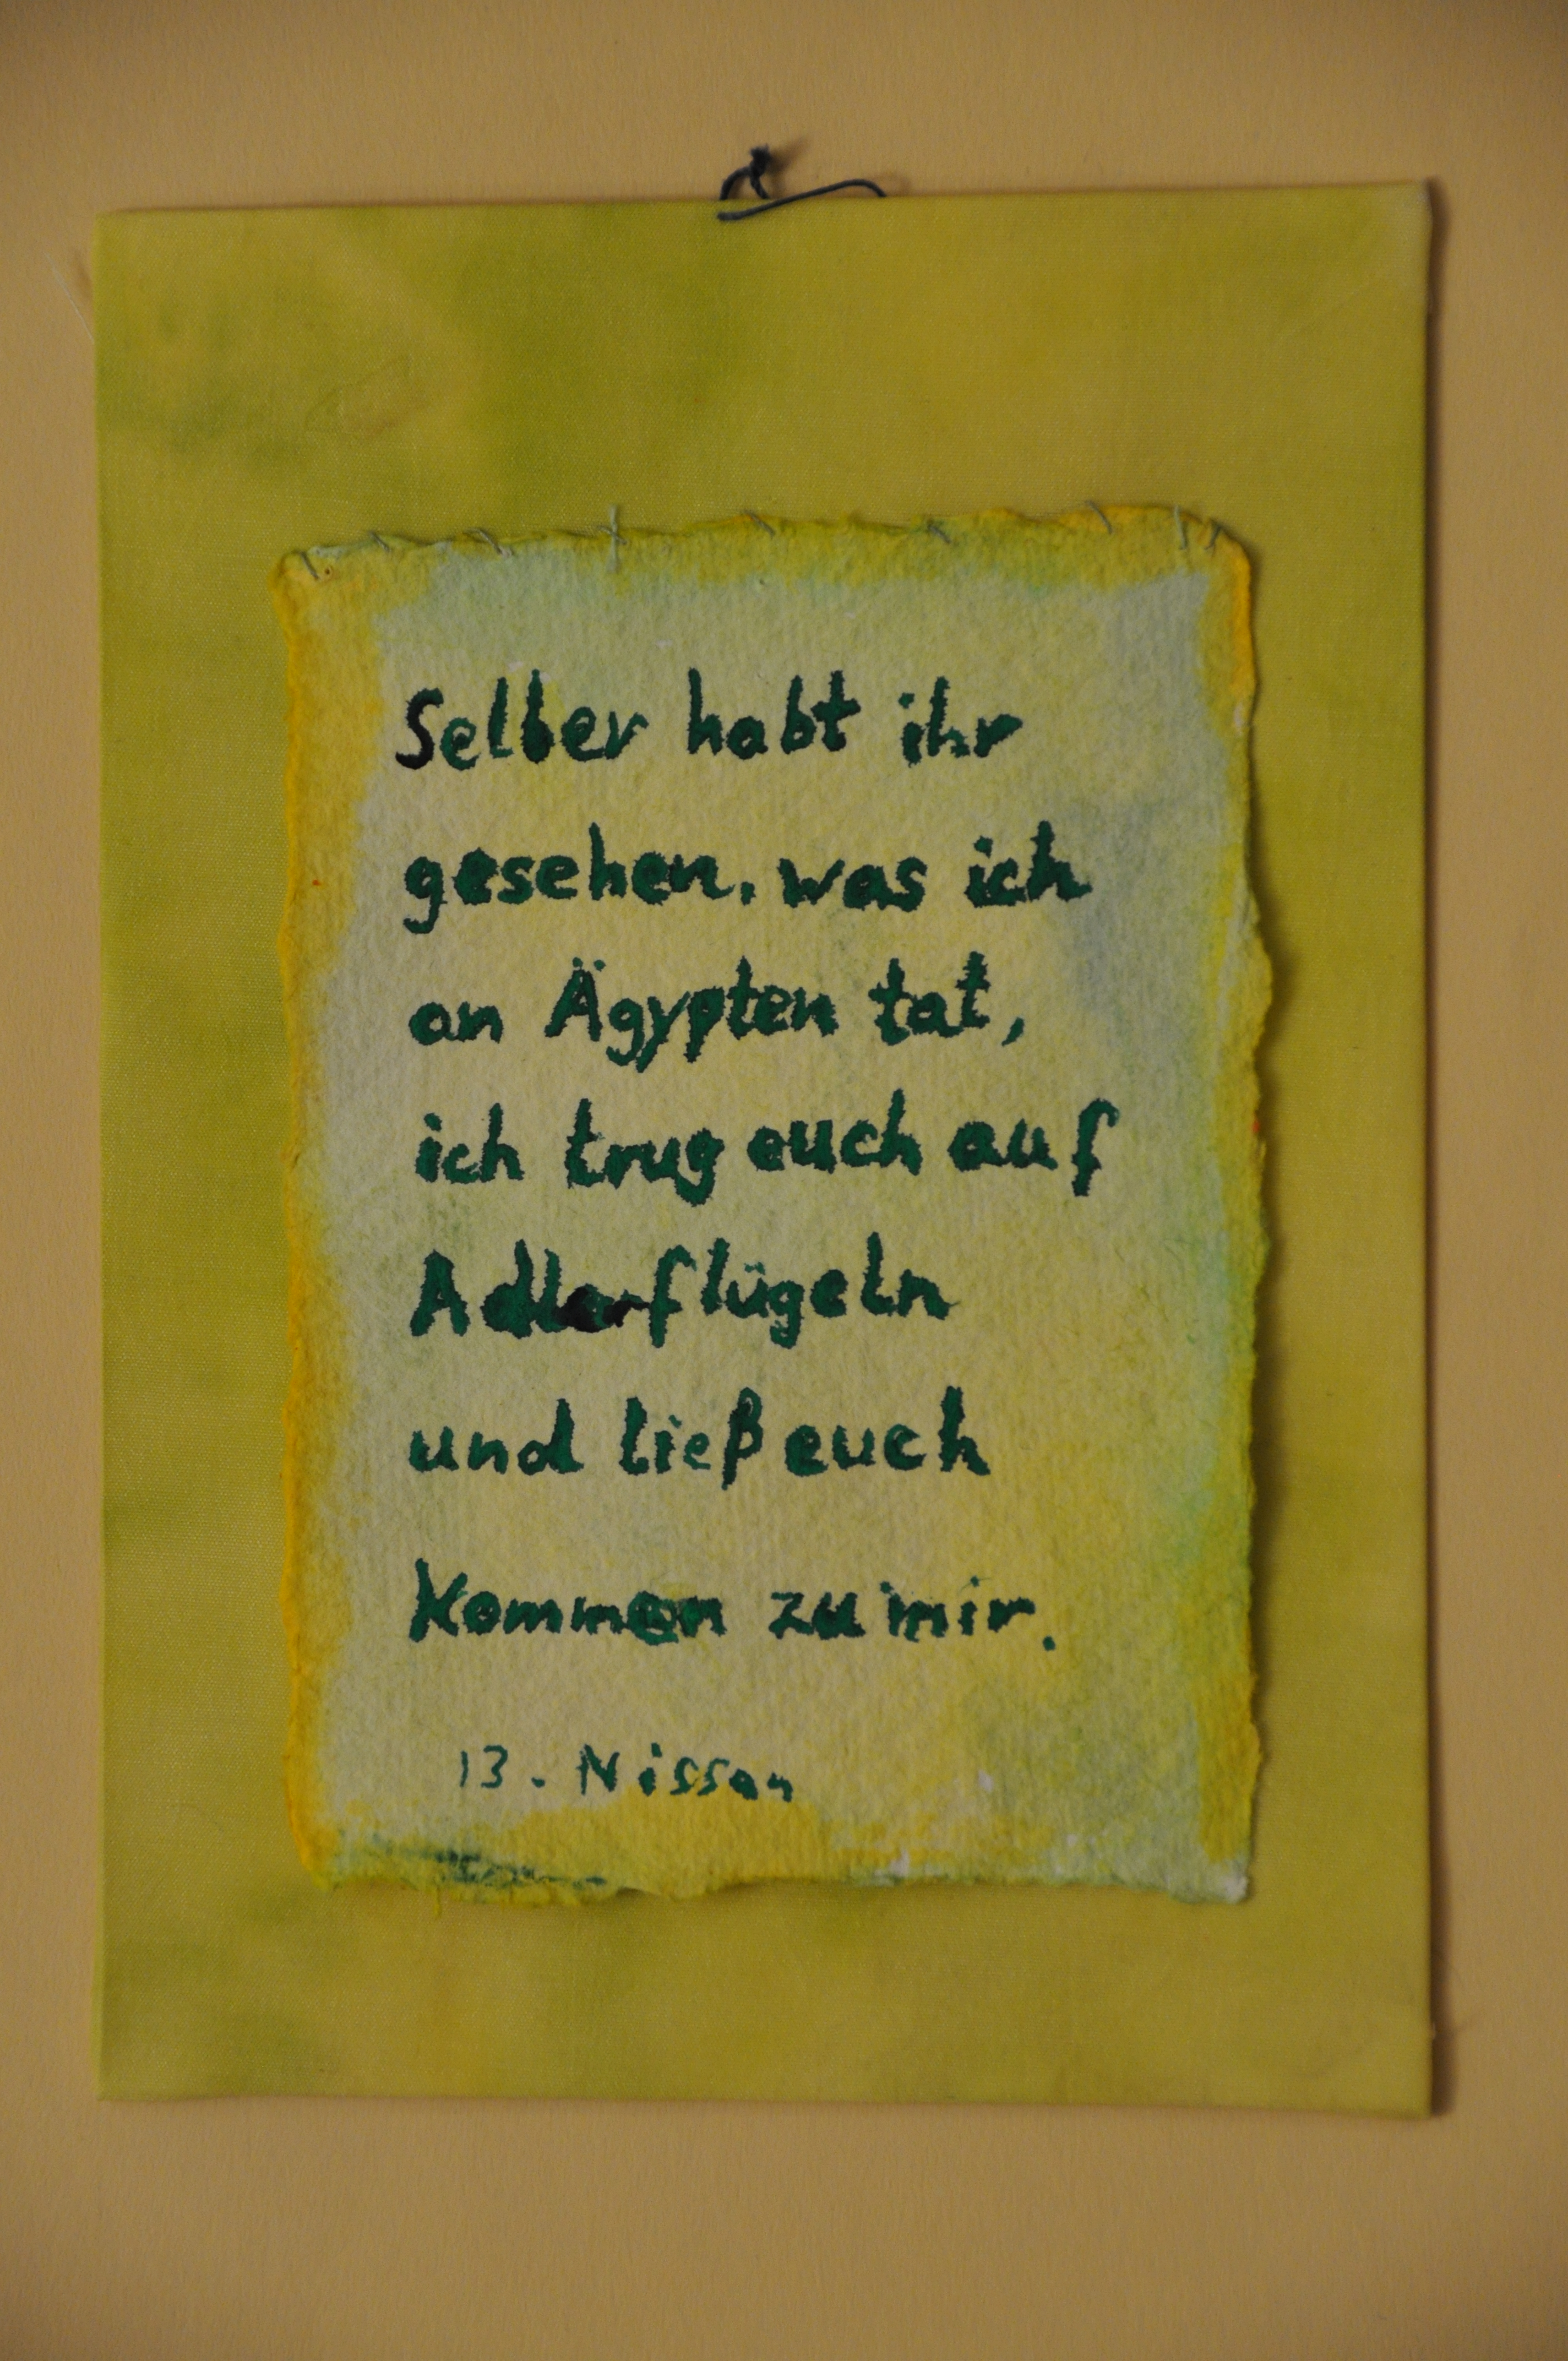 Selber habt ihr
gesehen, was ich
an Ägypten tat,
ich trug euch auf
Adlerflügeln
und ließ euch
kommen zu mir.
13. Nissan